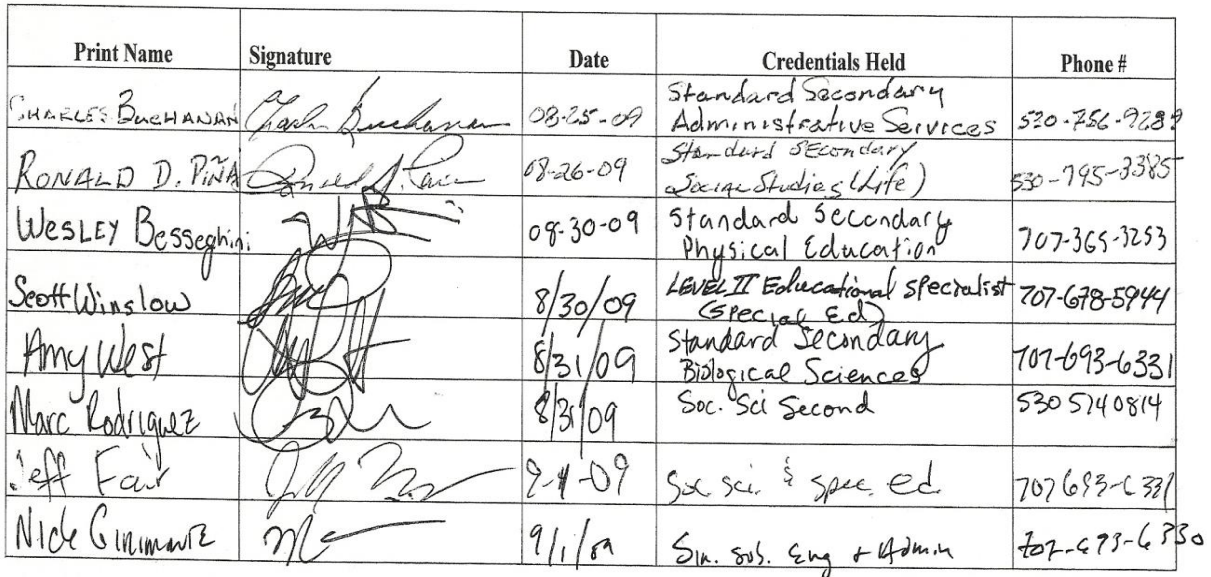 Print Name Signature Date Credentials Held Phone #
CHARLES BUCHANAN Charles Buchanan 08-25-09 Standard Secondary
Administrative Services 530-756-9289
RONALD D. PIÑA 08-26-09 Standard Secondary
Social Studies (Life) 530-795-3385
WESLEY Besseghini 08-30-09 Standard Secondary
Physical Education 707-365-3253
Scott Winslow 8/30/09 LEVEL II Educational Specialist
(Special Ed) 707-678-5944
Amy West 8/31/09 Standard Secondary
Biological Sciences 707-693-6331
Marc Rodriguez 8/31/09 Soc. Sci Second 530 574 0814
Jeff Fair 9-1-09 Soc sci. & spec. ed. 707 693-6331
Nick 9/1/09 Sin. sub. Eng + Admin 707-693-6330